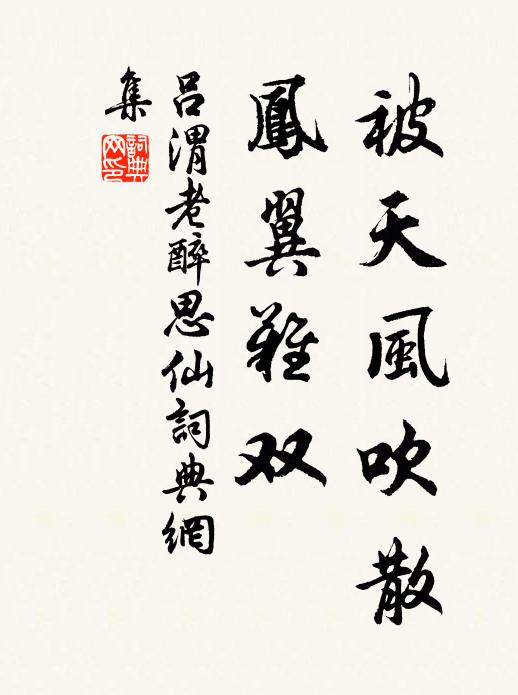 被天風吹散
鳳翼難双
吕渭老醉思仙詞典網
集
詞典
网印